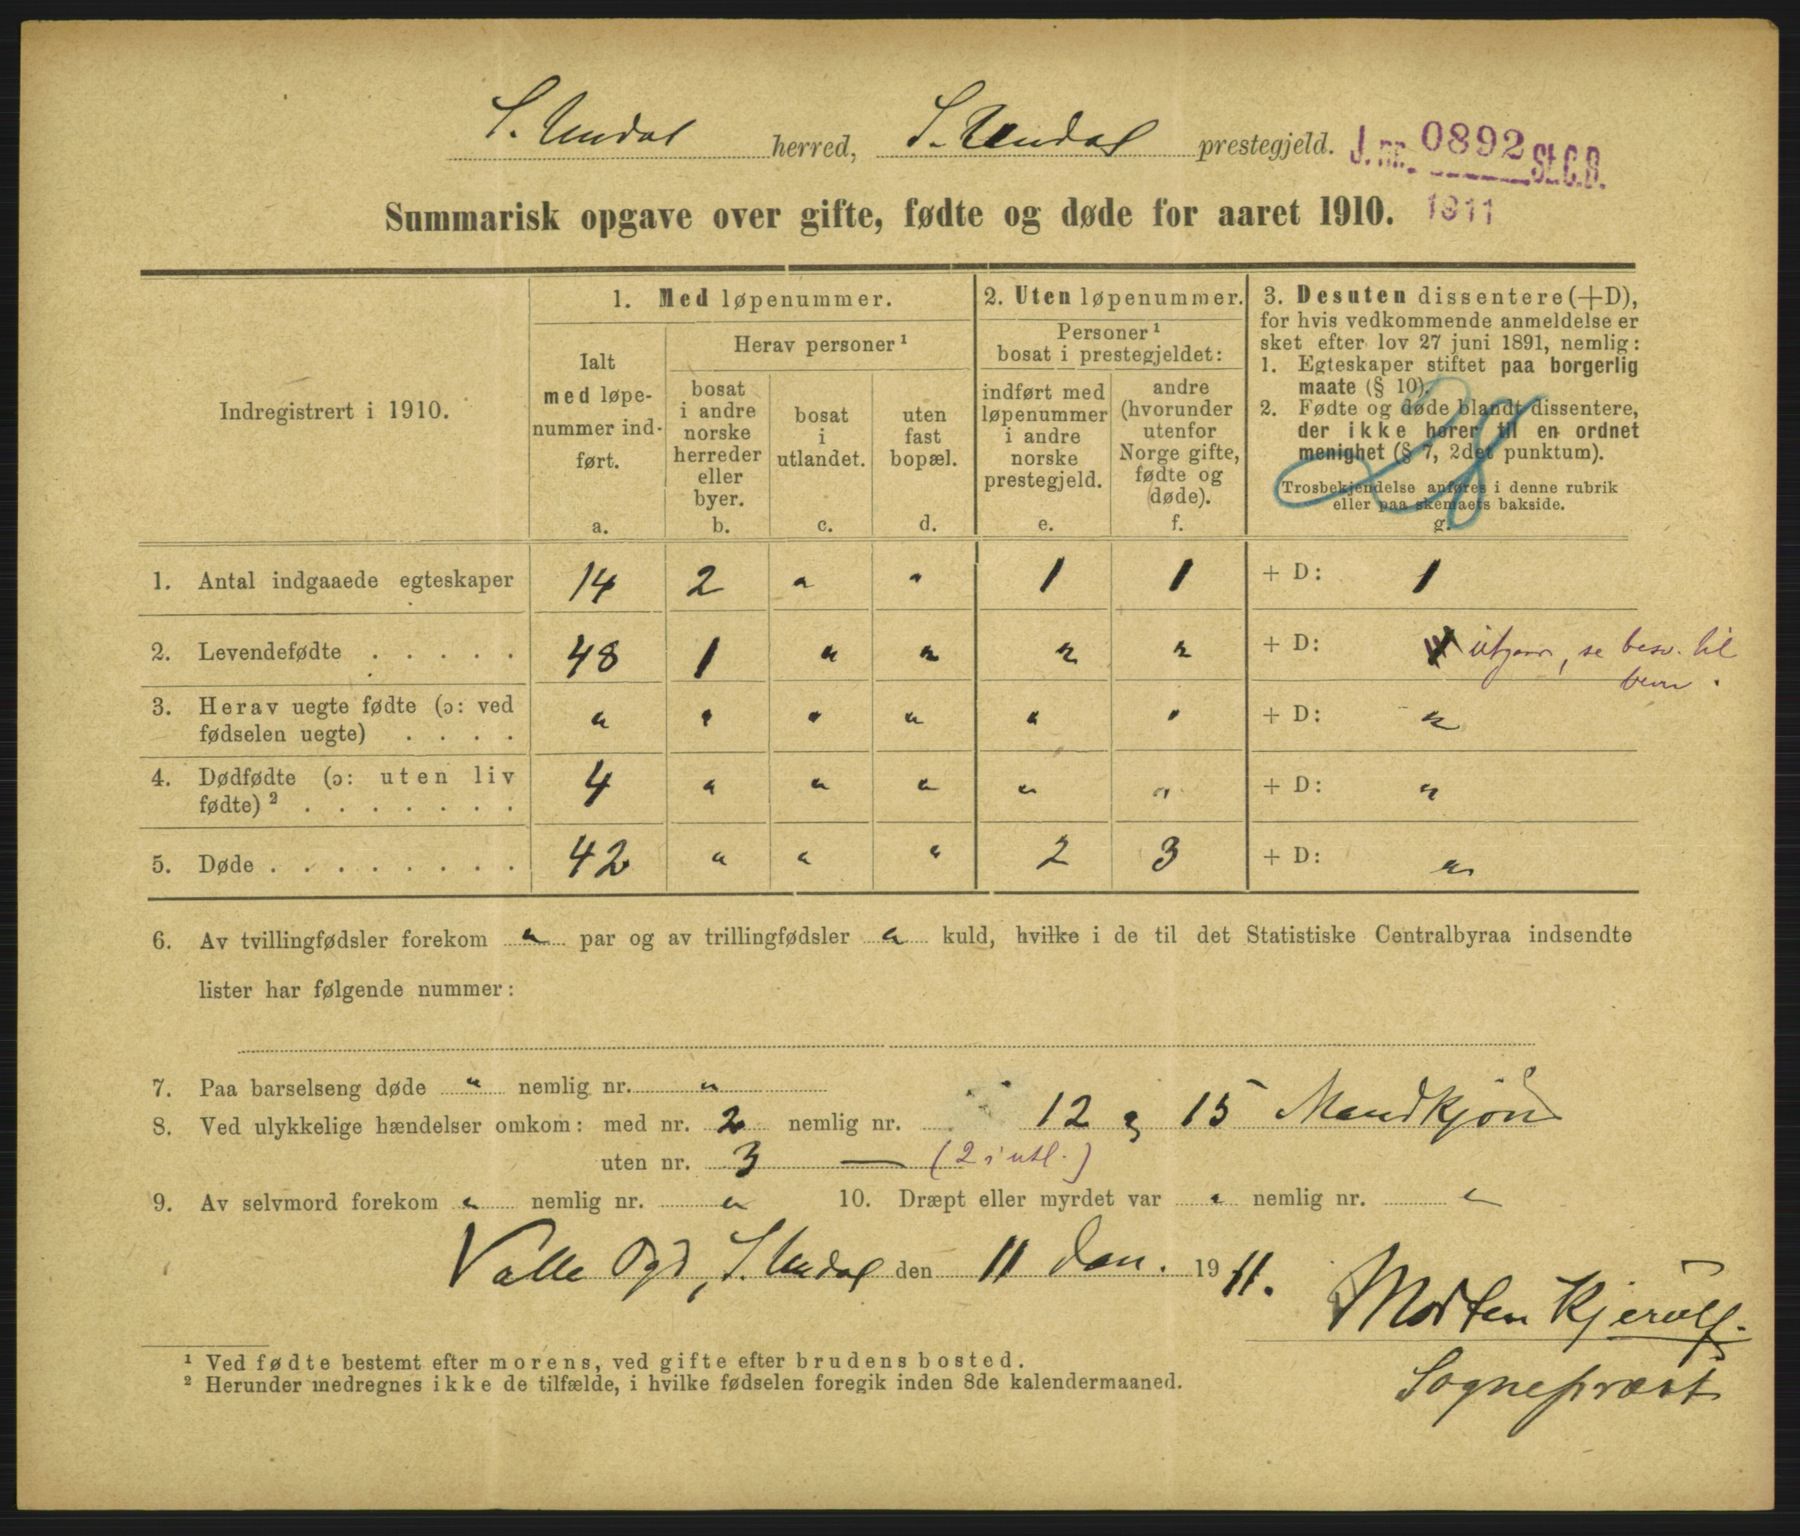 S. Undal herred, S. Undal prestegjeld. J. nr. 0892 St.C.B.
1911
Summarisk opgave over gifte, fødte og døde for aaret 1910.
Indregistrert i 1910.
1. Med løpenummer.
Ialt
med løpe-
nummer ind-
ført.
a.
Herav personer ¹
bosat
i andre
norske
herreder
eller
byer.
b.
bosat
i
utlandet.
c.
uten
fast
bopæl.
d.
2. Uten løpenummer.
Personer ¹
bosat i prestegjeldet:
indført med
løpenummer
i andre
norske
prestegjeld.
e.
andre
(hvorunder
utenfor
Norge gifte,
fødte og
døde).
f.
3. Desuten dissentere (+D),
for hvis vedkommende anmeldelse er
sket efter lov 27 juni 1891, nemlig:
1. Egteskaper stiftet paa borgerlig
maate (§ 10).
2. Fødte og døde blandt dissentere,
der ikke hører til en ordnet
menighet (§ 7, 2det punktum).
Trosbekjendelse anføres i denne rubrik
eller paa skemaets bakside.
g.
1. Antal indgaaede egteskaper 14 2 " " 1 1 + D: 1
2. Levendefødte . . . . . 48 1 " " " " + D: utgaar, se besv. til
3. Herav uegte fødte (ɔ: ved
fødselen uegte) . . . . " " " " " " + D: "
4. Dødfødte (ɔ: uten liv
fødte) ² . . . . . . . 4 " " " " " + D: "
5. Døde . . . . . . . . 42 " " " 2 3 + D: "
6. Av tvillingfødsler forekom " par og av trillingfødsler " kuld, hvilke i de til det Statistiske Centralbyraa indsendte
lister har følgende nummer:
7. Paa barselseng døde " nemlig nr. "
8. Ved ulykkelige hændelser omkom: med nr. 2 nemlig nr. 12 og 15 Mandkjøn
uten nr. 3 — (2 i utl.)
9. Av selvmord forekom " nemlig nr. " 10. Dræpt eller myrdet var " nemlig nr. "
Valle S. Undal den 11 Jan. 1911.
Morten Kjerulf.
Sognepræst
¹ Ved fødte bestemt efter morens, ved gifte efter brudens bosted.
² Herunder medregnes ikke de tilfælde, i hvilke fødselen foregik inden 8de kalendermaaned.